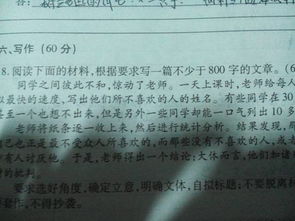 六、写作（60分）
8.阅读下面的材料，根据要求写一篇不少于800字的文章。（6
同学之间彼此不和，惊动了老师。一天上课时，老师给每人
以最快的速度，写出他们所不喜欢的人的姓名。有些同学在30
甚至一个也想不出来，但是另外一些同学却能一口气列出10多
老师将纸条逐一收上来，然后进行统计分析。结果发现，
自己也正是最不受众人所喜欢的，而那些没有不喜欢的人，或
有人讨厌他。于是，老师得出一个结论：大体而言，他们加诸
的批判。
要求选好角度，确定立意，明确文体，自拟标题；不要脱离
套作，不得抄袭。